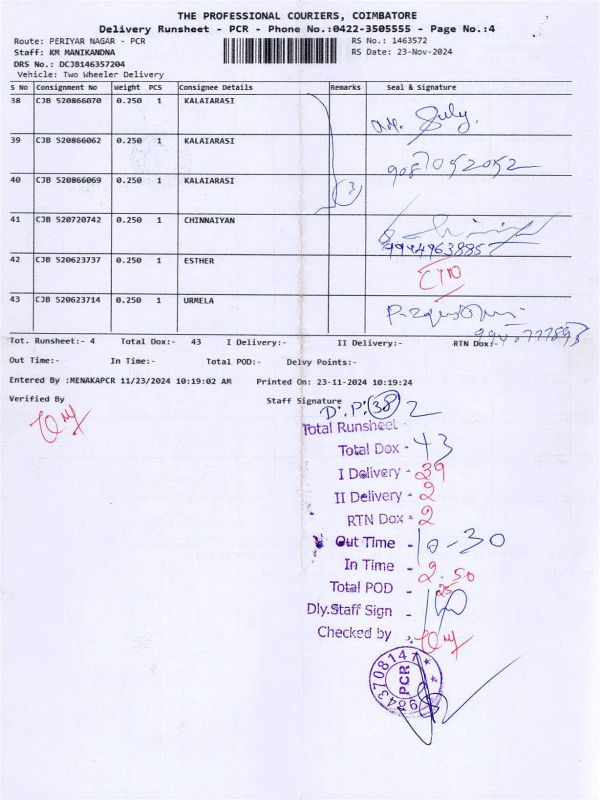 THE PROFESSIONAL COURIERS, COIMBATORE
Delivery Runsheet - PCR - Phone No.:0422-3505555 - Page No.:4
Route: PERIYAR NAGAR - PCR RS No.: 1463572
Staff: KM MANIKANDNA RS Date: 23-Nov-2024
DRS No.: DCJB146357204
Vehicle: Two Wheeler Delivery
S No Consignment No Weight PCS Consignee Details Remarks Seal & Signature
38 CJB 520866070 0.250 1 KALAIARASI
39 CJB 520866062 0.250 1 KALAIARASI 9087052052
40 CJB 520866069 0.250 1 KALAIARASI 3
41 CJB 520720742 0.250 1 CHINNAIYAN 9944963885
42 CJB 520623737 0.250 1 ESTHER
43 CJB 520623714 0.250 1 URMELA
Tot. Runsheet:- 4 Total Dox:- 43 I Delivery:- II Delivery:- RTN Dox:-
Out Time:- In Time:- Total POD:- Delvy Points:-
Entered By :MENAKAPCR 11/23/2024 10:19:02 AM Printed On: 23-11-2024 10:19:24
Verified By Staff Signature
D.P: 38 2
Total Runsheet -
Total Dox - 43
I Delivery - 39
II Delivery - 2
RTN Dox - 2
Out Time - 10-30
In Time - 2.50
Total POD -
Dly.Staff Sign -
Checked by -
PCR